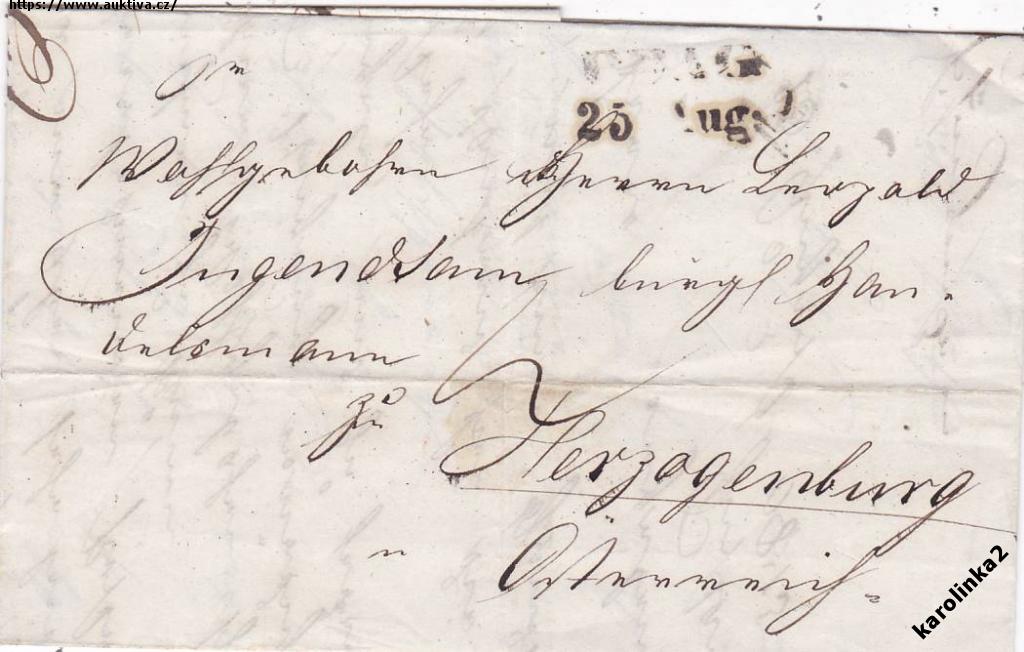 https://www.auktiva.cz/
25 Aug.
Wohlgebohrn Herrn Leopold
Jugendsam bürgl Han-
delsmann
zu
Herzogenburg
Österreich
karolinka2